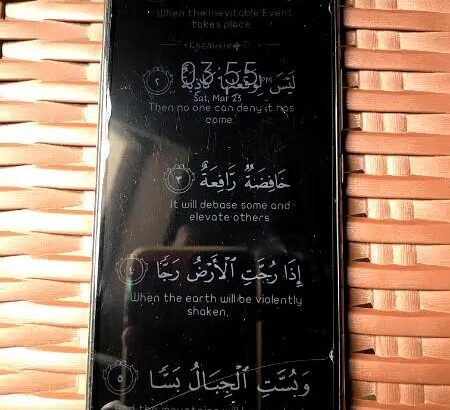 When the Inevitable Event
takes place
لَيْسَ لِوَقْعَتِهَا كَاذِبَةٌ ٢
03:55 PM
Sat, Mar 23
Then no one can deny it has
come.
خَافِضَةٌ رَّافِعَةٌ ٣
It will debase some and
elevate others
إِذَا رُجَّتِ ٱلْأَرْضُ رَجًّا ٤
When the earth will be violently
shaken,
وَبُسَّتِ ٱلْجِبَالُ بَسًّا ٥